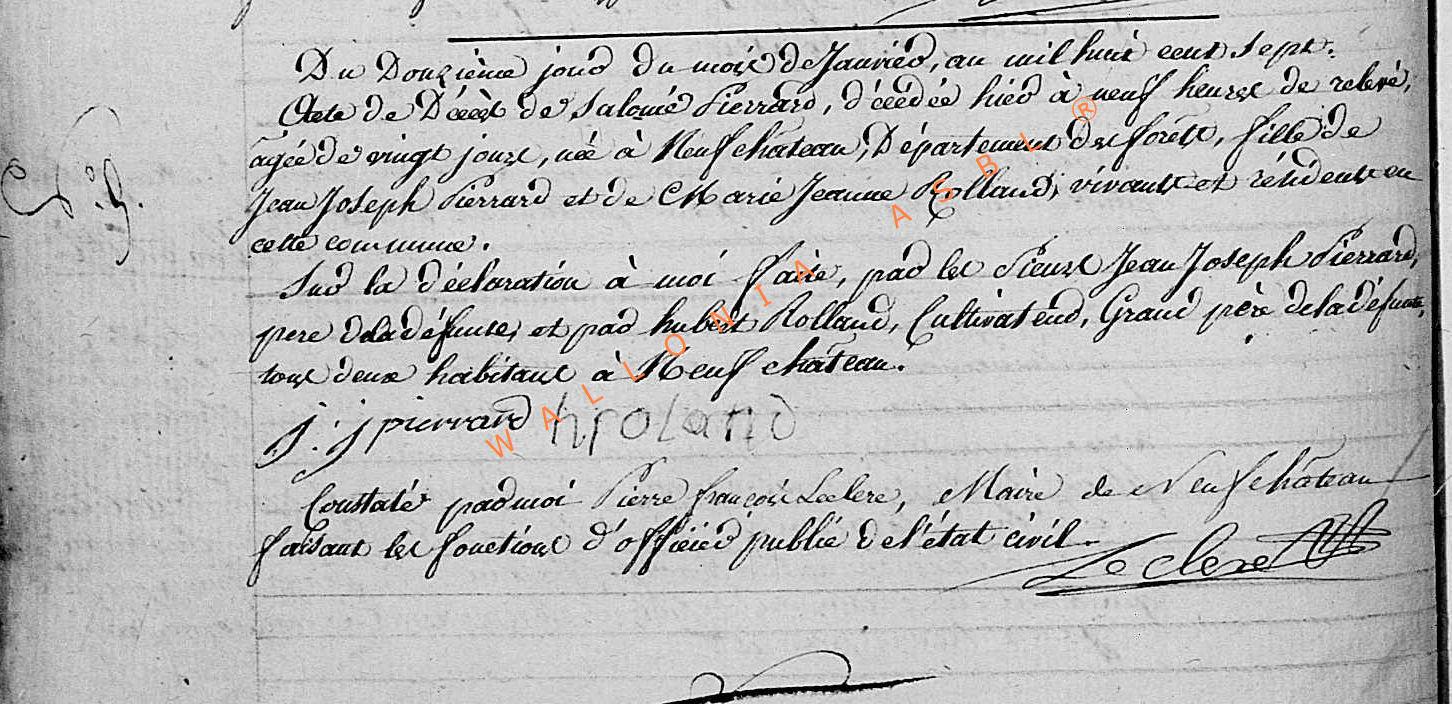 Du Douzième jour du mois de Janvier, au mil huit cent sept.
Acte de Décès de Salomé Pierrard, décédée hier à neuf heures de relevé,
agée de vingt jours, née à Neufchateau, Département des forêts, fille de
Jean Joseph Pierrard et de Marie Jeanne Rolland, vivants et résidents en
cette commune.
Sur la déclaration à moi faite, par les Sieurs Jean Joseph Pierrard,
pere de la défunte, et par hubert Rolland, Cultivateur, Grand père de la défunte,
tous deux habitans à Neufchâteau.
j. j pierrard hroland
Constaté par moi Pierre françois Leclerc, Maire de Neufchâteau
faisant les fonctions d'officier public de l'état civil.
Leclerc
WALLONIA ASBL ®